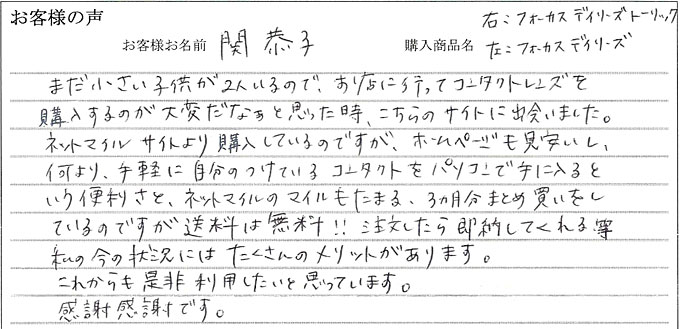 お客様の声
お客様お名前 関 恭子 購入商品名 右:フォーカスデイリーズトーリック
左:フォーカスデイリーズ
まだ小さい子供が2人いるので、お店に行ってコンタクトレンズを
購入するのが大変だなぁと思った時、こちらのサイトに出会いました。
ネットマイルサイトより購入しているのですが、ホームページも見安いし、
何より、手軽に自分のつけているコンタクトをパソコンで手に入ると
いう便利さと、ネットマイルのマイルもたまる、3ヵ月分まとめ買いをし
ているのですが送料は無料!!注文したら即納してくれる等
私の今の状況にはたくさんのメリットがあります。
これからも是非利用したいと思っています。
感謝感謝です。